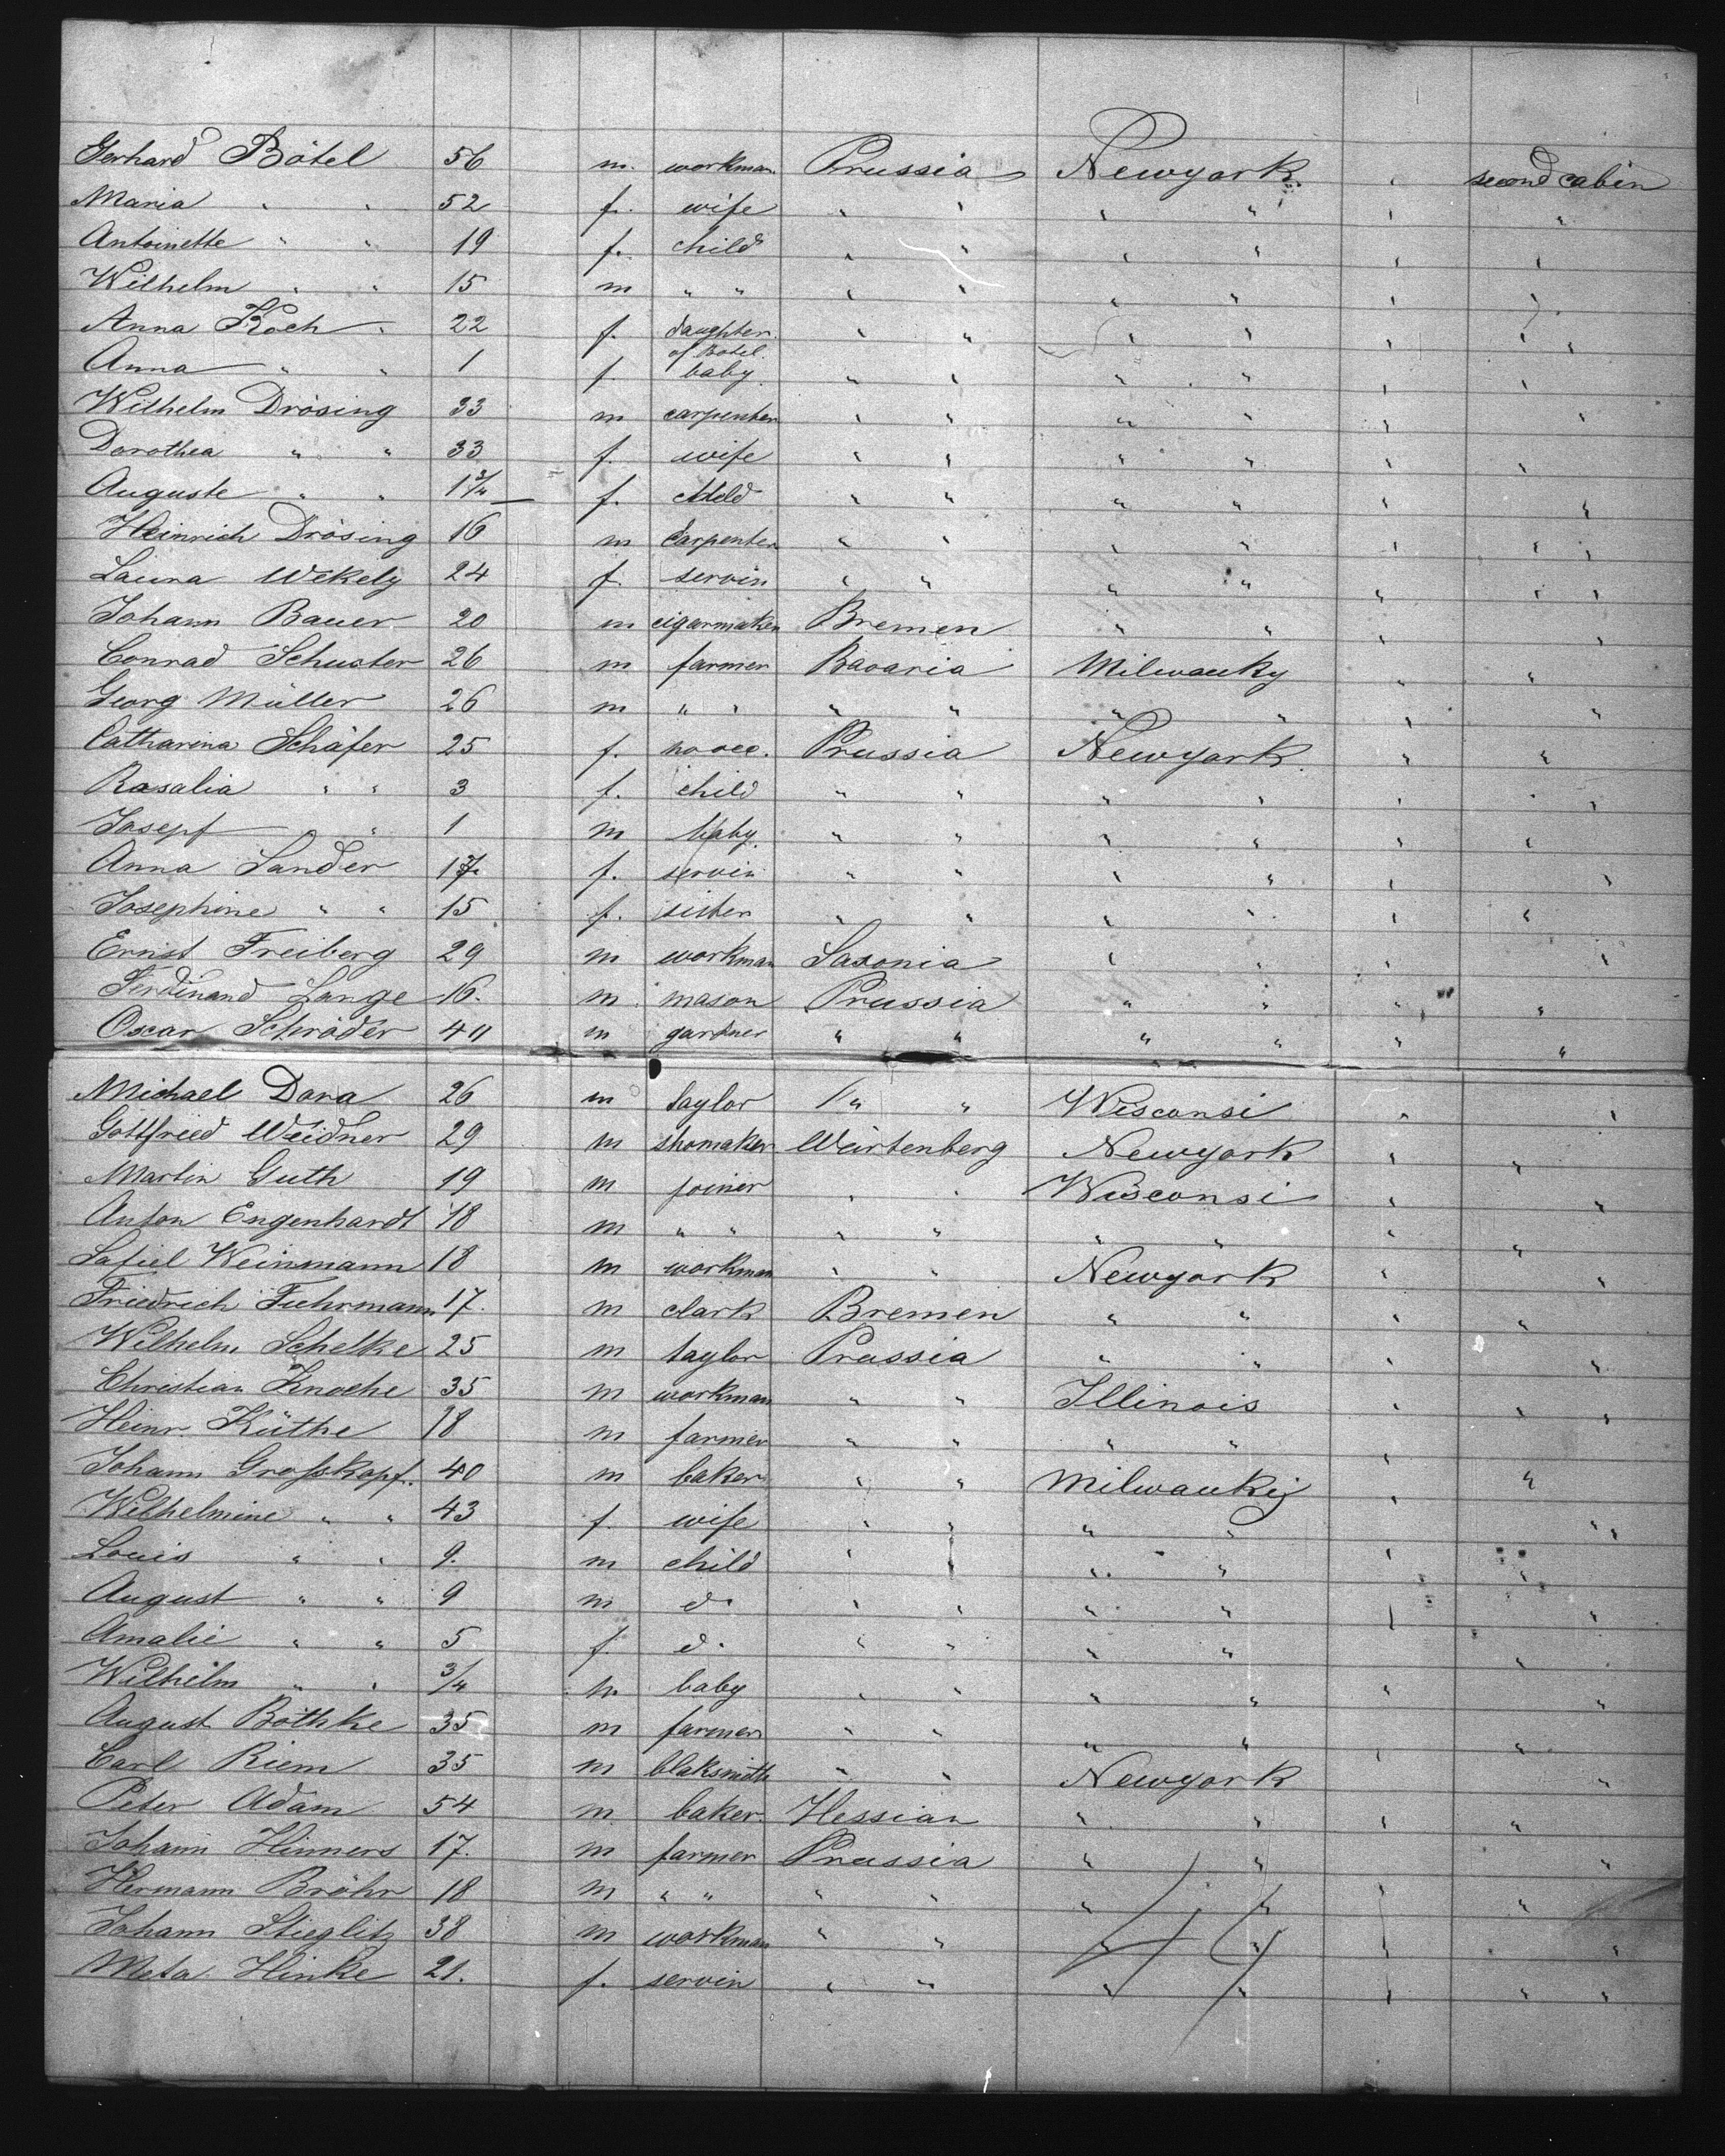 Gerhard Bötel 56 m. workman Prussia Newyork " second cabin
Maria " " 52 f. wife " " " " " "
Antoinette " " 19 f. child " " " " " "
Wilhelm " " 15 m " " " " " " " "
Anna Koch " 22 f. daughter of Botel. " " " " " "
Anna " " 1 f. baby. " " " " " "
Wilhelm Drösing 33 m carpenter " " " " " "
Dorothea " " 33 f. wife " " " " " "
Auguste " " 1 3/4 f. child " " " " " "
Heinrich Drösing 16 m Carpenter " " " " " "
Laura Wekely 24 f. servin " " " " " "
Johann Bauer 20 m cigarmaker Bremen " " " "
Conrad Schuster 26 m farmer Bavaria Milwauky " "
Georg Müller 26 m " " " " " " " "
Catharina Schäfer 25 f. no occ. Prussia Newyork. " "
Rosalia " " 3 f. child " " " " " "
Josepf " 1 m baby. " " " " " "
Anna Sander 17. f. servin " " " " " "
Josephine " " 15 f. sister " " " " " "
Ernst Freiberg 29 m workman Saxonia " " " "
Ferdinand Lange 16. m. mason Prussia " " " "
Oscar Schröder m gardner " " " " " "
Michael Dora 26 m taylor " " Wisconsi " "
Gottfried Weidner 29 m shomaker Würtenberg Newyork " "
Martin Guth 19 m joiner " " Wisconsi " "
Anton Engenhardt 18 m " " " " " " " "
Weinmann 18 m workman " " Newyork " "
Friedrich Fuhrmann 17. m clark Bremen " " " "
Wilhelm Schelke 25 m taylor Prussia " " " "
Christian Knoche 35 m workman " " Illinois " "
Heinr. Küthe 18 m farmer " " " " " "
Johann Grosskopf. 40 m baker " " Milwaukij " "
Wilhelmine " " 43 f. wife " " " " "
Louis " " 9. m child " " " " " "
August " " 9 m d. " " " " "
Amalie " " 5 f. d. " " " " "
Wilhelm " " 3/4 m baby " " " " " "
August Böthke 35 m farmer " " " " " "
Carl Riem 35 m blaksmith " " Newyork "
Peter Adam 54 m. baker. Hessian " " " "
Johann Hinners 17. m farmer Prussia " " "
Hermann Bröhr 18 m " " " " " " " "
Johann Stieglitz 38 m workman " " " " " "
Meta Hinke 21. f. servin " " " " " "
44